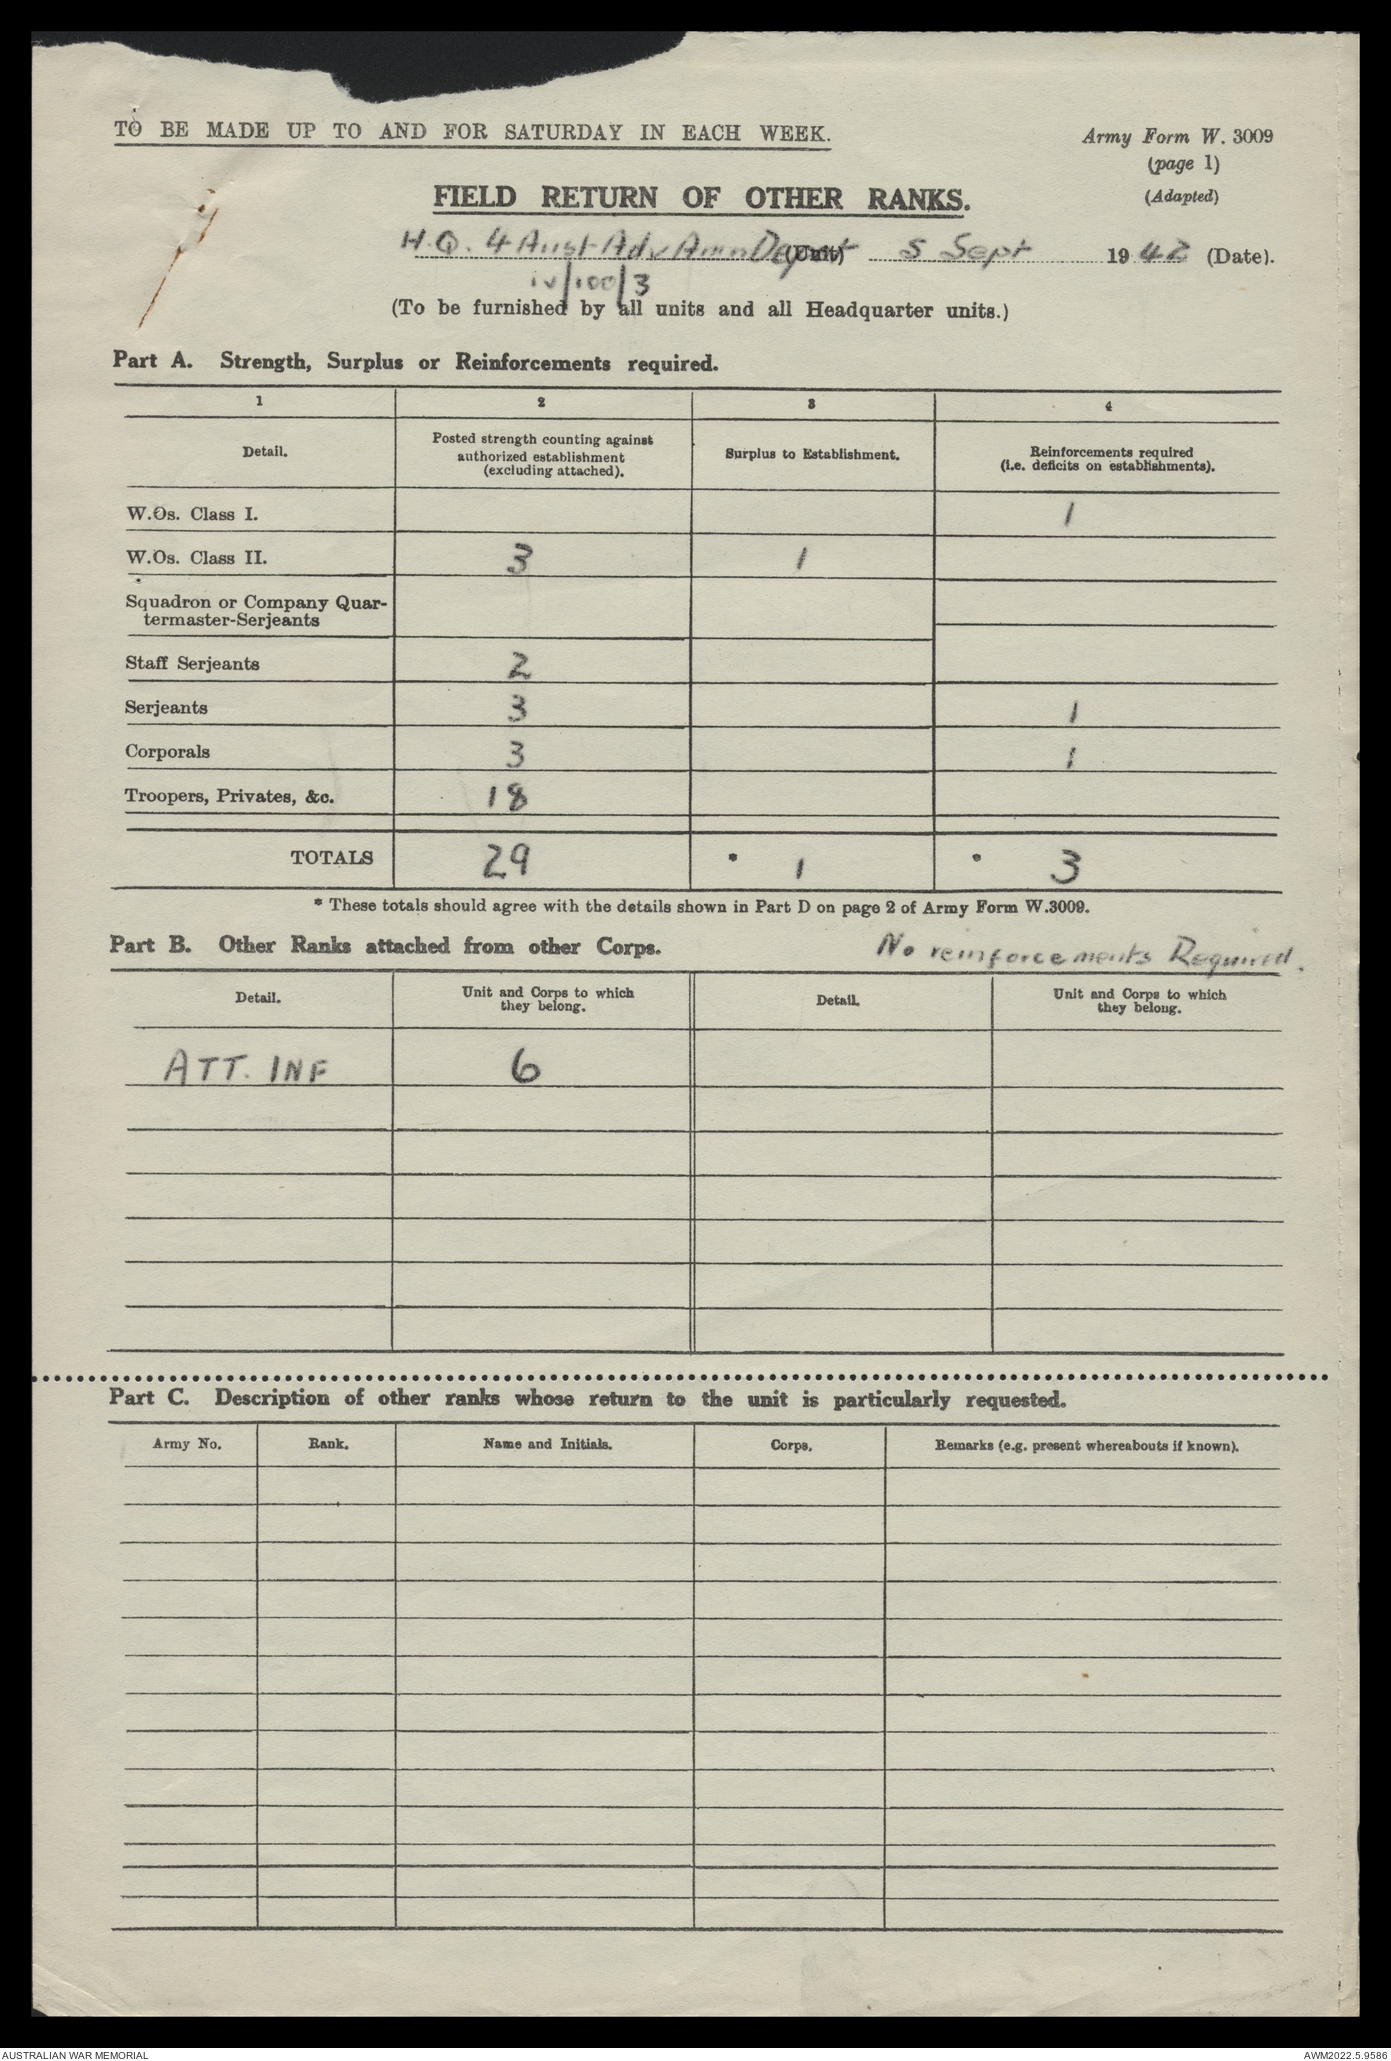 TO BE MADE UP TO AND FOR SATURDAY IN EACH WEEK.
Army Form W. 3009
(page 1)
(Adapted)
FIELD RETURN OF OTHER RANKS.
H.Q. 4 Aust Adv Amn Depot (Unit) 5 Sept 1942 (Date).
IV/100/3
(To be furnished by all units and all Headquarter units.)
Part A. Strength, Surplus or Reinforcements required.
1 2 3 4
Detail. Posted strength counting against authorized establishment (excluding attached). Surplus to Establishment. Reinforcements required (i.e. deficits on establishments).
W.Os. Class I. 1
W.Os. Class II. 3 1
Squadron or Company Quar-
termaster-Serjeants
Staff Serjeants 2
Serjeants 3 1
Corporals 3 1
Troopers, Privates, &c. 18
TOTALS 29 * 1 * 3
* These totals should agree with the details shown in Part D on page 2 of Army Form W.3009.
Part B. Other Ranks attached from other Corps. No reinforcements Required.
Detail. Unit and Corps to which they belong. Detail. Unit and Corps to which they belong.
ATT. INF 6
Part C. Description of other ranks whose return to the unit is particularly requested.
Army No. Rank. Name and Initials. Corps. Remarks (e.g. present whereabouts if known).
AUSTRALIAN WAR MEMORIAL AWM2022.5.9586